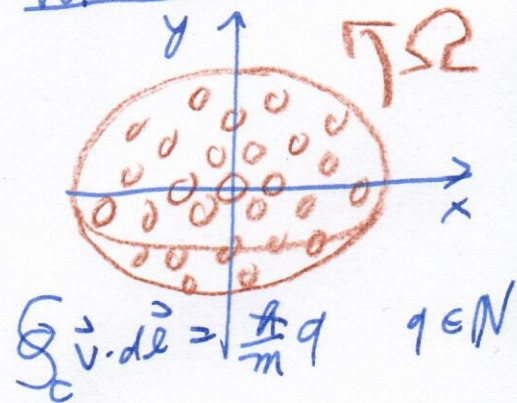 y
Ω
x
∮_C v⃗·dℓ⃗ = h/m q q ∈ ℕ